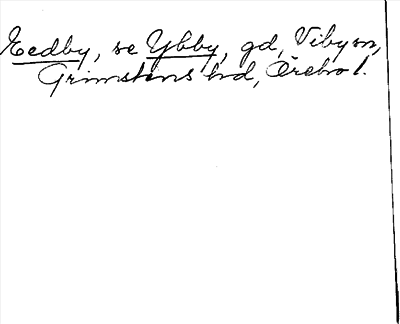 Eedby, se Ybby, gd, Viby sn,
Grimstens hd, Örebro l.